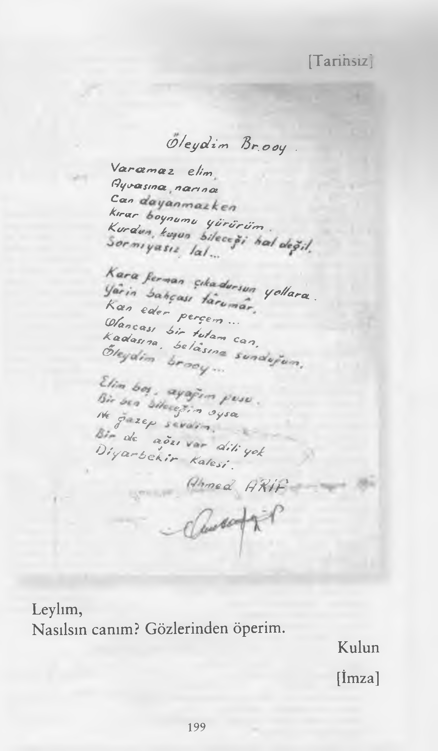 [Tarihsiz]
Öleydim Brooy
Varamaz elim,
Ayvasına, narına
Can dayanmazken
Kırar boynumu yürürüm.
Kurdun, kuşun bileceği hal değil,
Sormıyasız lal...
Kara ferman çıkadursun yollara.
Yârin bahçası târumâr,
Kan eder perçem...
Olancası bir tutam can,
Kadasına, belâsına sunduğum,
Öleydim brooy...
Elim boş, ayağım pusu.
Bir ben bileceğim oysa
Ne gazep sevdim.
Bir de ağzı var dili yok
Diyarbekir Kalesi.
Ahmed ARİF
Leylım,
Nasılsın canım? Gözlerinden öperim.
Kulun
[İmza]
199